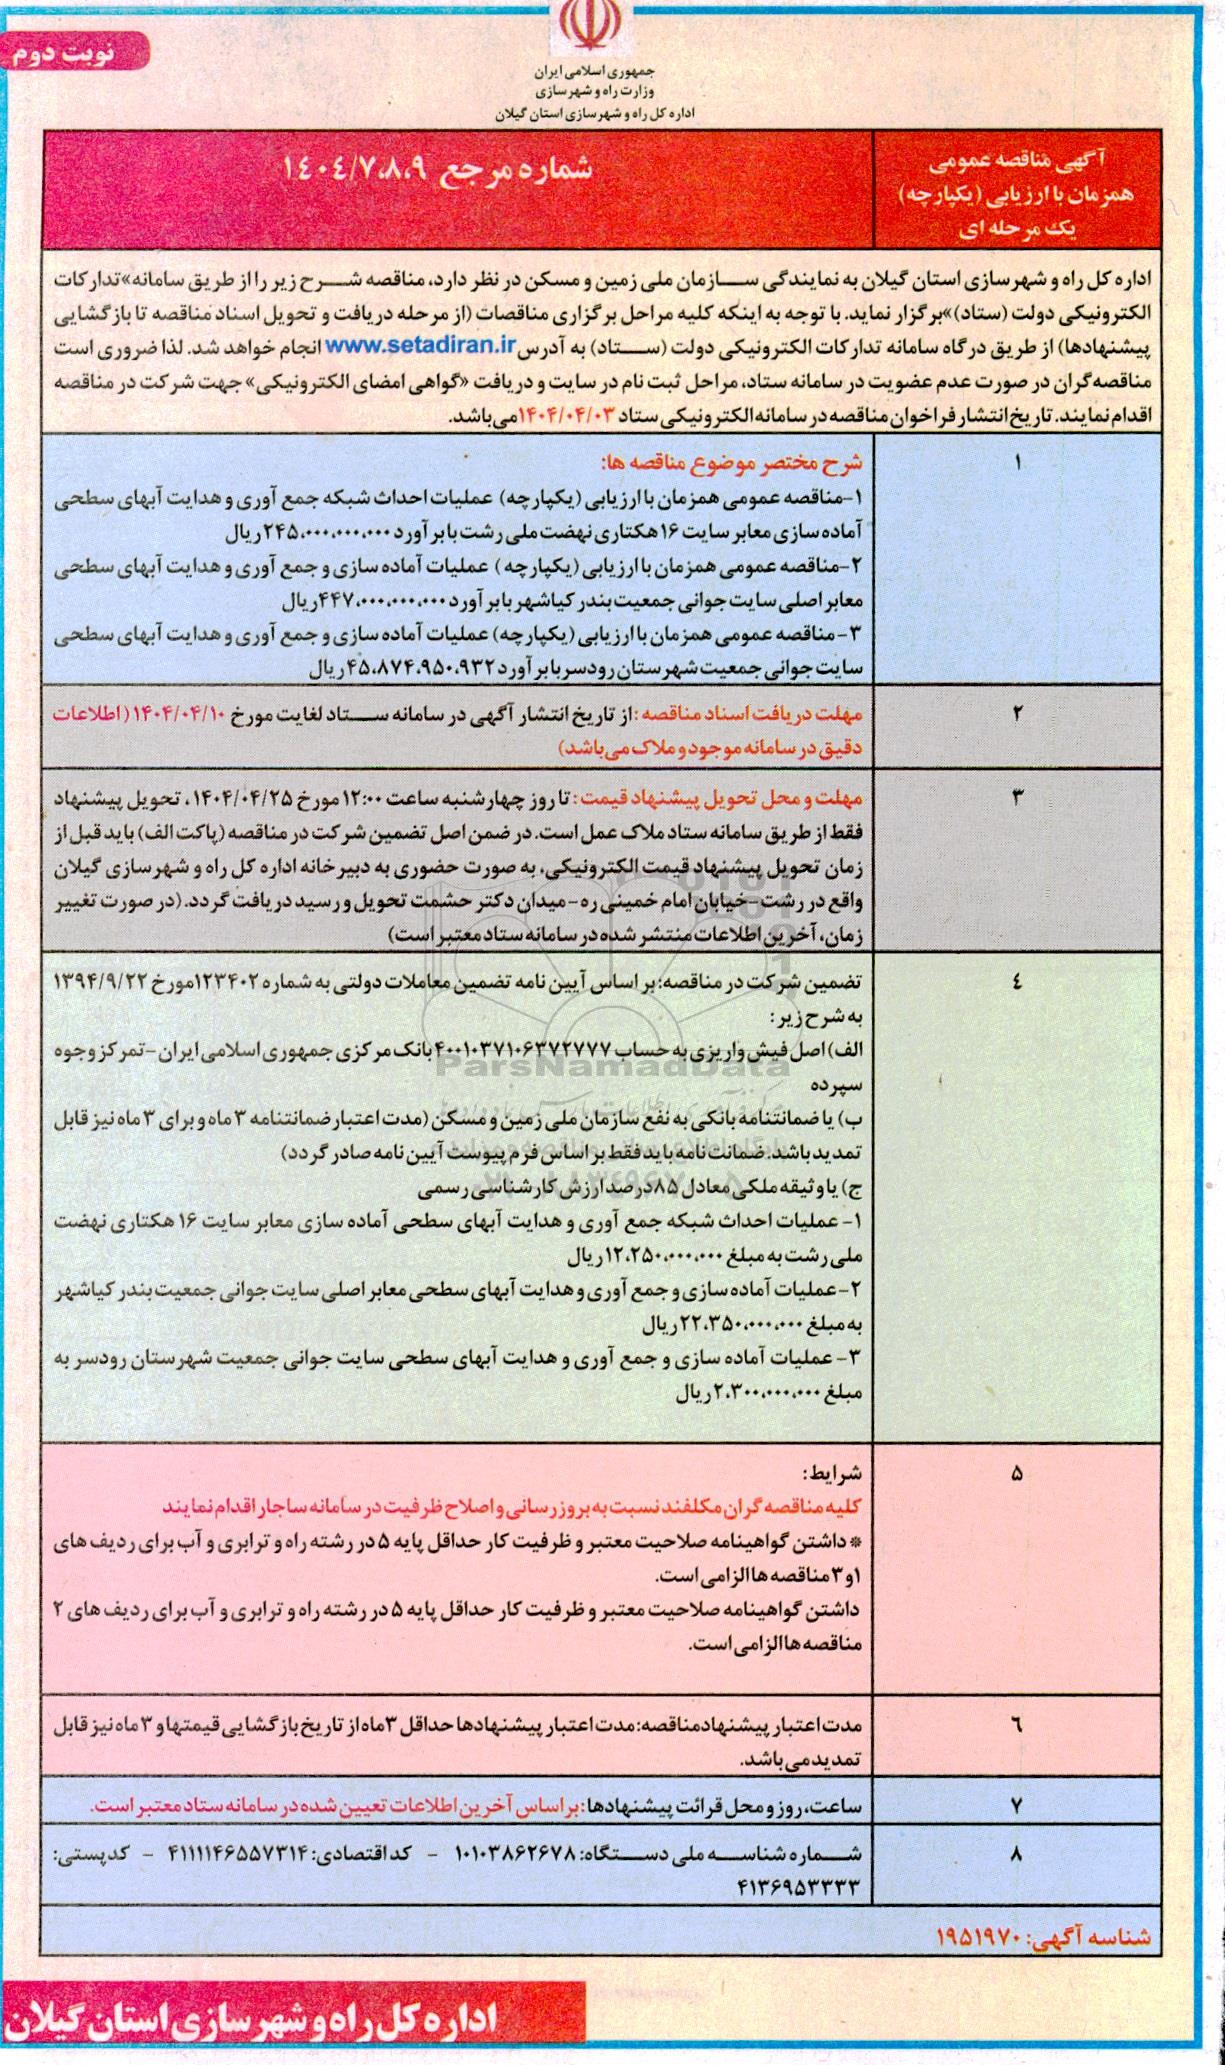 نوبت دوم
جمهوری اسلامی ایران
وزارت راه و شهرسازی
اداره کل راه و شهرسازی استان گیلان
آگهی مناقصه عمومی
همزمان با ارزیابی (یکپارچه)
یک مرحله ای
شماره مرجع ۱۴۰۴/۷،۸،۹
اداره کل راه و شهرسازی استان گیلان به نمایندگی سازمان ملی زمین و مسکن در نظر دارد، مناقصه شرح زیر را از طریق سامانه»تدارکات
الکترونیکی دولت (ستاد)»برگزار نماید. با توجه به اینکه کلیه مراحل برگزاری مناقصات (از مرحله دریافت و تحویل اسناد مناقصه تا بازگشایی
پیشنهادها) از طریق درگاه سامانه تدارکات الکترونیکی دولت (ستاد) به آدرس www.setadiran.ir انجام خواهد شد. لذا ضروری است
مناقصه‌گران در صورت عدم عضویت در سامانه ستاد، مراحل ثبت نام در سایت و دریافت «گواهی امضای الکترونیکی» جهت شرکت در مناقصه
اقدام نمایند. تاریخ انتشار فراخوان مناقصه در سامانه الکترونیکی ستاد ۱۴۰۴/۰۴/۰۳ می‌باشد.
۱
شرح مختصر موضوع مناقصه ها:
۱-مناقصه عمومی همزمان با ارزیابی (یکپارچه) عملیات احداث شبکه جمع آوری و هدایت آبهای سطحی
آماده سازی معابر سایت ۱۶ هکتاری نهضت ملی رشت با برآورد ۲۴۵،۰۰۰،۰۰۰،۰۰۰ ریال
۲-مناقصه عمومی همزمان با ارزیابی (یکپارچه) عملیات آماده سازی و جمع آوری و هدایت آبهای سطحی
معابر اصلی سایت جوانی جمعیت بندر کیاشهر با برآورد ۴۴۷،۰۰۰،۰۰۰،۰۰۰ ریال
۳-مناقصه عمومی همزمان با ارزیابی (یکپارچه) عملیات آماده سازی و جمع آوری و هدایت آبهای سطحی
سایت جوانی جمعیت شهرستان رودسر با برآورد ۴۵،۸۷۴،۹۵۰،۹۳۲ ریال
۲
مهلت دریافت اسناد مناقصه :از تاریخ انتشار آگهی در سامانه ستاد لغایت مورخ ۱۴۰۴/۰۴/۱۰ (اطلاعات
دقیق در سامانه موجود و ملاک می‌باشد)
۳
مهلت و محل تحویل پیشنهاد قیمت : تا روز چهارشنبه ساعت ۱۲:۰۰ مورخ ۱۴۰۴/۰۴/۲۵ ، تحویل پیشنهاد
فقط از طریق سامانه ستاد ملاک عمل است. در ضمن اصل تضمین شرکت در مناقصه (پاکت الف) باید قبل از
زمان تحویل پیشنهاد قیمت الکترونیکی، به صورت حضوری به دبیرخانه اداره کل راه و شهرسازی گیلان
واقع در رشت-خیابان امام خمینی ره-میدان دکتر حشمت تحویل و رسید دریافت گردد. (در صورت تغییر
زمان، آخرین اطلاعات منتشر شده در سامانه ستاد معتبر است)
٤
تضمین شرکت در مناقصه: بر اساس آیین نامه تضمین معاملات دولتی به شماره ۱۲۳۴۰۲ مورخ ۱۳۹۴/۹/۲۲
به شرح زیر :
الف) اصل فیش واریزی به حساب ۴۰۰۱۰۳۷۱۰۶۳۷۲۷۷۷ بانک مرکزی جمهوری اسلامی ایران-تمرکز وجوه
سپرده
ب) یا ضمانتنامه بانکی به نفع سازمان ملی زمین و مسکن (مدت اعتبار ضمانتنامه ۳ ماه و برای ۳ ماه نیز قابل
تمدید باشد. ضمانت نامه باید فقط بر اساس فرم پیوست آیین نامه صادر گردد)
ج) یا وثیقه ملکی معادل ۸۵ درصد ارزش کارشناسی رسمی
۱- عملیات احداث شبکه جمع آوری و هدایت آبهای سطحی آماده سازی معابر سایت ۱۶ هکتاری نهضت
ملی رشت به مبلغ ۱۲،۲۵۰،۰۰۰،۰۰۰ ریال
۲-عملیات آماده سازی و جمع آوری و هدایت آبهای سطحی معابر اصلی سایت جوانی جمعیت بندر کیاشهر
به مبلغ ۲۲،۳۵۰،۰۰۰،۰۰۰ ریال
۳- عملیات آماده سازی و جمع آوری و هدایت آبهای سطحی سایت جوانی جمعیت شهرستان رودسر به
مبلغ ۲،۳۰۰،۰۰۰،۰۰۰ ریال
ParsNamadData
۵
شرایط:
کلیه مناقصه گران مکلفند نسبت به بروزرسانی و اصلاح ظرفیت در سامانه ساجار اقدام نمایند
* داشتن گواهینامه صلاحیت معتبر و ظرفیت کار حداقل پایه ۵ در رشته راه و ترابری و آب برای ردیف های
۱و۳ مناقصه ها الزامی است.
داشتن گواهینامه صلاحیت معتبر و ظرفیت کار حداقل پایه ۵ در رشته راه و ترابری و آب برای ردیف های ۲
مناقصه ها الزامی است.
٦
مدت اعتبار پیشنهاد مناقصه: مدت اعتبار پیشنهادها حداقل ۳ ماه از تاریخ بازگشایی قیمتها و ۳ ماه نیز قابل
تمدید می باشد.
۷
ساعت، روز و محل قرائت پیشنهادها :بر اساس آخرین اطلاعات تعیین شده در سامانه ستاد معتبر است.
۸
شماره شناسه ملی دستگاه: ۱۰۱۰۳۸۶۲۶۷۸ - کد اقتصادی: ۴۱۱۱۱۴۶۵۵۷۳۱۴ - کدپستی:
۴۱۳۶۹۵۳۳۳۳
شناسه آگهی: ۱۹۵۱۹۷۰
اداره کل راه و شهرسازی استان گیلان